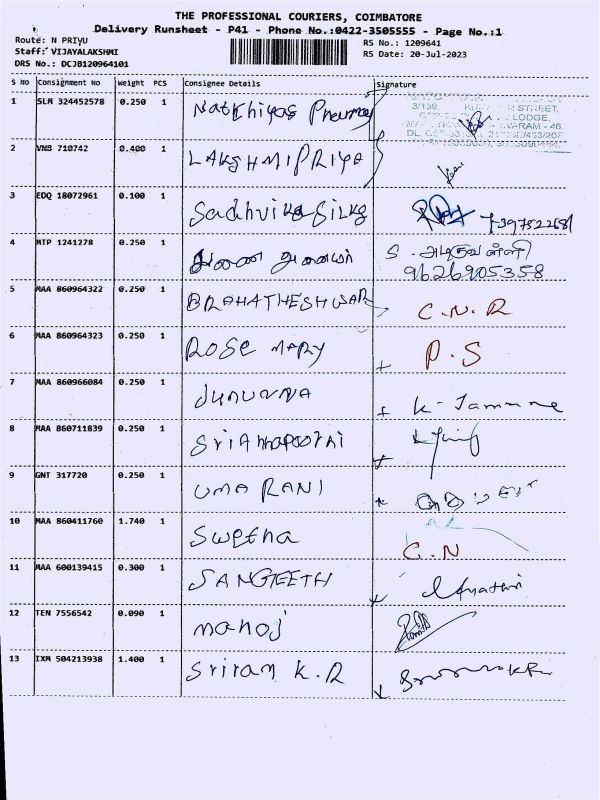 THE PROFESSIONAL COURIERS, COIMBATORE
Delivery Runsheet - P41 - Phone No.:0422-3505555 - Page No.:1
Route: N PRIYU
Staff: VIJAYALAKSHMI
DRS No.: DCJB120964101
RS No.: 1209641
RS Date: 20-Jul-2023
S No Consignment No Weight PCS Consignee Details Signature
1 SLM 324452578 0.250 1
3/139, STREET,
LODGE,
2 VNB 710742 0.400 1 LAKSHMIPRIYA
3 EDQ 18072961 0.100 1 Sadhvika Silks
4 MTP 1241278 0.250 1 S.
9626905358
5 MAA 860964322 0.250 1 BRAHATHESHWAR C.N.R
6 MAA 860964323 0.250 1 ROSE MARY P.S
7 MAA 860966084 0.250 1 K-
8 MAA 860711839 0.250 1 Sri Annapoorni
9 GNT 317720 0.250 1 UMA RANI
10 MAA 860411760 1.740 1 Swetha C.N
11 MAA 600139415 0.300 1 SANGEETH
12 TEN 7556542 0.090 1 manoj
13 IXM 504213938 1.400 1 Sriram K.R